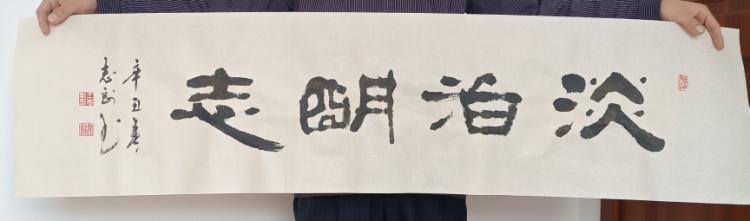 淡泊明志
辛丑春
志刚书